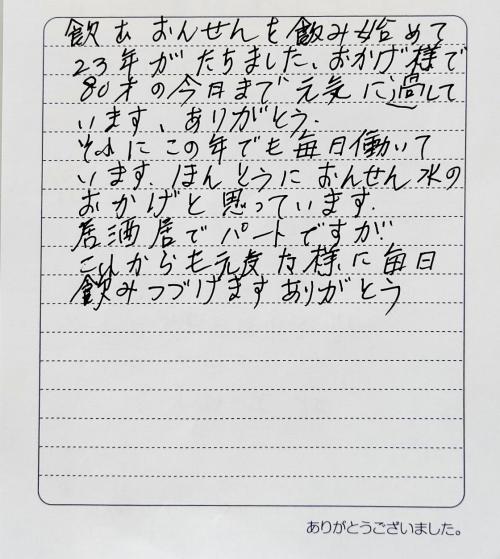 飲むおんせんを飲み始めて
23年がたちました、おかげ様で
80才の今日まで元気に過して
います、ありがとう.
それにこの年でも毎日働いて
います. ほんとうにおんせん水の
おかげと思っています.
居酒居でパートですが
これからも元気な様に毎日
飲みつづけます ありがとう
ありがとうございました。